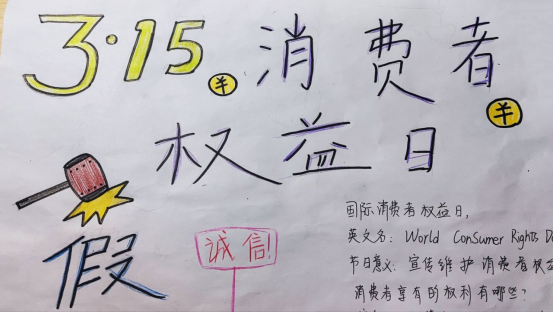 3·15 ¥ 消费者 ¥
权益日
假
诚信!
国际消费者权益日,
英文名: World Consumer Rights
节日意义: 宣传维护消费者权
消费者享有的权利有哪些?